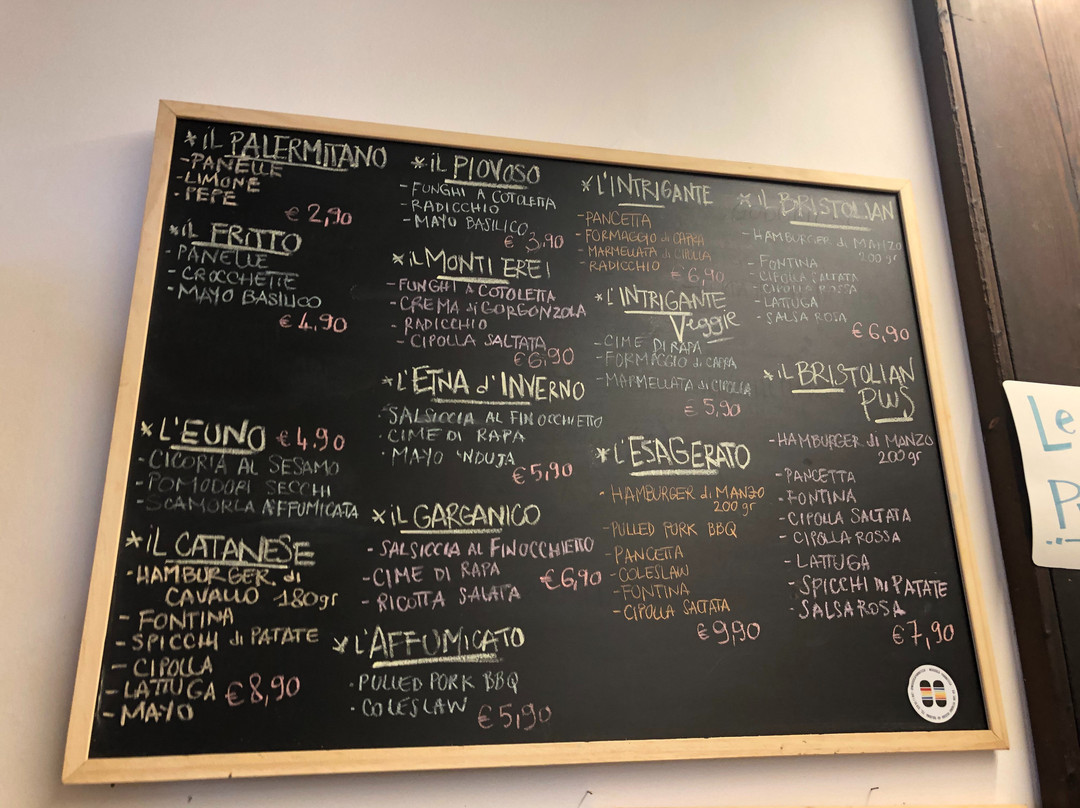 *iL PALERMITANO
-PANELLE
-LIMONE
-PEPE
€ 2,90
*iL FRITTO
-PANELLE
-CROCCHETTE
-MAYO BASILICO
€ 4,90
*L'EUNO €4,90
-CICORIA AL SESAMO
-POMODORI SECCHI
-SCAMORZA AFFUMICATA
*iL CATANESE
-HAMBURGER di
CAVALLO 180gr
-FONTINA
-SPICCHI di PATATE
-CIPOLLA
-LATTUGA €8,90
-MAYO
*iL PIOVOSO
-FUNGHI A COTOLETTA
-RADICCHIO
-MAYO BASILICO
€ 3,90
*iL MONTI EREI
-FUNGHI A COTOLETTA
-CREMA di GORGONZOLA
-RADICCHIO
-CIPOLLA SALTATA
€6,90
*L'ETNA d'INVERNO
·SALSICCIA AL FINOCCHIETTO
·CIME DI RAPA
·MAYO 'NDUJA
€5,90
*iL GARGANICO
-SALSICCIA AL FINOCCHIETTO
-CIME DI RAPA €6,90
-RICOTTA SALATA
*L'AFFUMICATO
·PULLED PORK BBQ
·COLESLAW €5,90
*L'INTRIGANTE
-PANCETTA
-FORMAGGIO di CAPRA
-MARMELLATA di CIPOLLA
-RADICCHIO €6,90
*L'INTRIGANTE
Veggie
-CIME DI RAPA
-FORMAGGIO di CAPRA
-MARMELLATA di CIPOLLA
€ 5,90
*L'ESAGERATO
·HAMBURGER di MANZO
200 gr
-PULLED PORK BBQ
-PANCETTA
-COLESLAW
-FONTINA
-CIPOLLA SALTATA
€9,90
*iL BRISTOLIAN
-HAMBURGER di MANZO
200 gr
-FONTINA
-CIPOLLA SALTATA
-CIPOLLA ROSSA
-LATTUGA
-SALSA ROSA
€6,90
*iL BRISTOLIAN
PLUS
-HAMBURGER di MANZO
200 gr
-PANCETTA
-FONTINA
-CIPOLLA SALTATA
-CIPOLLA ROSSA
-LATTUGA
-SPICCHI DI PATATE
-SALSA ROSA
€7,90
Le